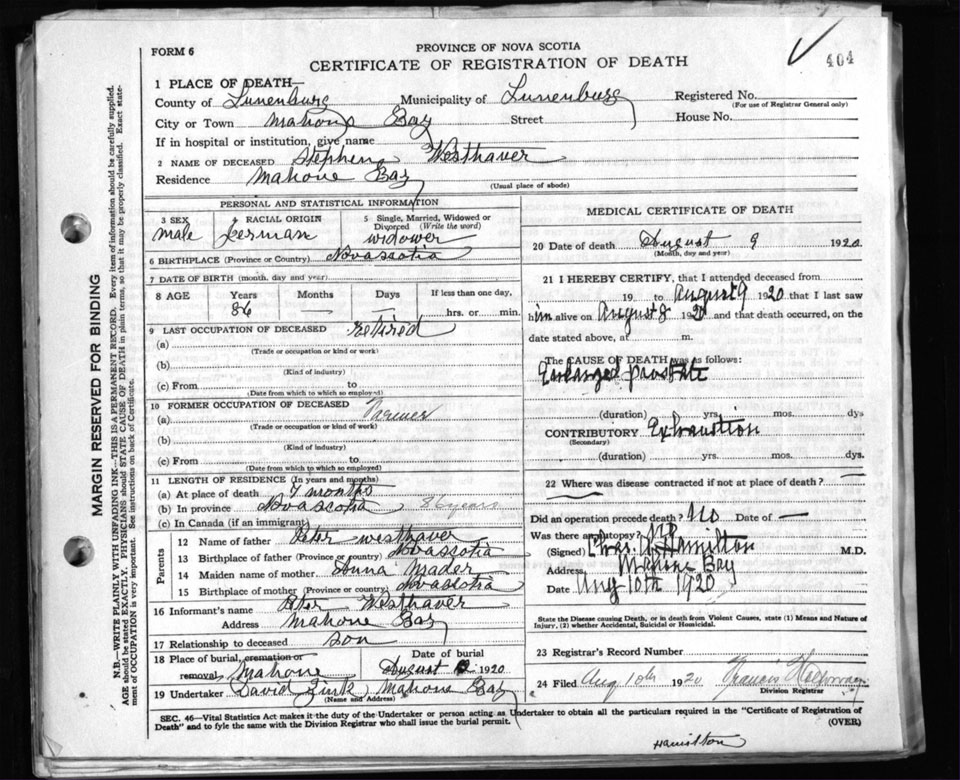 FORM 6
PROVINCE OF NOVA SCOTIA
CERTIFICATE OF REGISTRATION OF DEATH
404
1 PLACE OF DEATH—
County of Lunenburg Municipality of Lunenburg Registered No.
(For use of Registrar General only)
City or Town Mahone Bay Street House No.
If in hospital or institution, give name
2 NAME OF DECEASED Stephen Westhaver
Residence Mahone Bay
(Usual place of abode)
PERSONAL AND STATISTICAL INFORMATION
3 SEX 4 RACIAL ORIGIN 5 Single, Married, Widowed or Divorced (Write the word)
male German widower
6 BIRTHPLACE (Province or Country) Novascotia
7 DATE OF BIRTH (month, day and year)
8 AGE Years Months Days If less than one day,
86 — — hrs. or min.
9 LAST OCCUPATION OF DECEASED Retired
(a)
(Trade or occupation or kind or work)
(b)
(Kind of industry)
(c) From to
(Date from which to which so employed)
10 FORMER OCCUPATION OF DECEASED
(a)
(Trade or occupation or kind of work)
(b)
(Kind of industry)
(c) From to
(Date from which to which so employed)
11 LENGTH OF RESIDENCE (In years and months)
(a) At place of death months
(b) In province Novascotia 86 years
(c) In Canada (if an immigrant)
Parents
12 Name of father Peter westhaver
13 Birthplace of father (Province or country) Novascotia
14 Maiden name of mother Anna Mader
15 Birthplace of mother (Province or country) Novascotia
16 Informant's name Peter Westhaver
Address Mahone Bay
17 Relationship to deceased son
18 Place of burial, cremation or removal Mahone
Date of burial August 1920
19 Undertaker David Zink, Mahone Bay
(Name and Address)
MEDICAL CERTIFICATE OF DEATH
20 Date of death August 9 1920
(Month, day and year)
21 I HEREBY CERTIFY, that I attended deceased from
19 to August 9 1920 that I last saw
him alive on August 8 1920 and that death occurred, on the
date stated above, at m.
The CAUSE OF DEATH was as follows:
Enlarged prostate
(duration) yrs. mos. dys
CONTRIBUTORY Exhaustion
(Secondary)
(duration) yrs. mos. dys.
22 Where was disease contracted if not at place of death? —
Did an operation precede death? No Date of —
Was there an autopsy? No
(Signed) Chas. A Hamilton M.D.
Address Mahone Bay
Date Aug 10th 1920
State the Disease causing Death, or in death from Violent Causes, state (1) Means and Nature of
Injury, (2) whether Accidental, Suicidal or Homicidal.
23 Registrar's Record Number
24 Filed Aug 10th 1920 Francis
Division Registrar
SEC. 46—Vital Statistics Act makes it the duty of the Undertaker or person acting as Undertaker to obtain all the particulars required in the "Certificate of Registration of
Death" and to fyle the same with the Division Registrar who shall issue the burial permit. (OVER)
Hamilton
MARGIN RESERVED FOR BINDING
N.B.—WRITE PLAINLY WITH UNFADING INK—THIS IS A PERMANENT RECORD. Every item of information should be carefully supplied.
AGE should be stated EXACTLY. PHYSICIANS should STATE CAUSE OF DEATH in plain terms, so that it may be properly classified. Exact statement of OCCUPATION is very important. See instructions on back of Certificate.